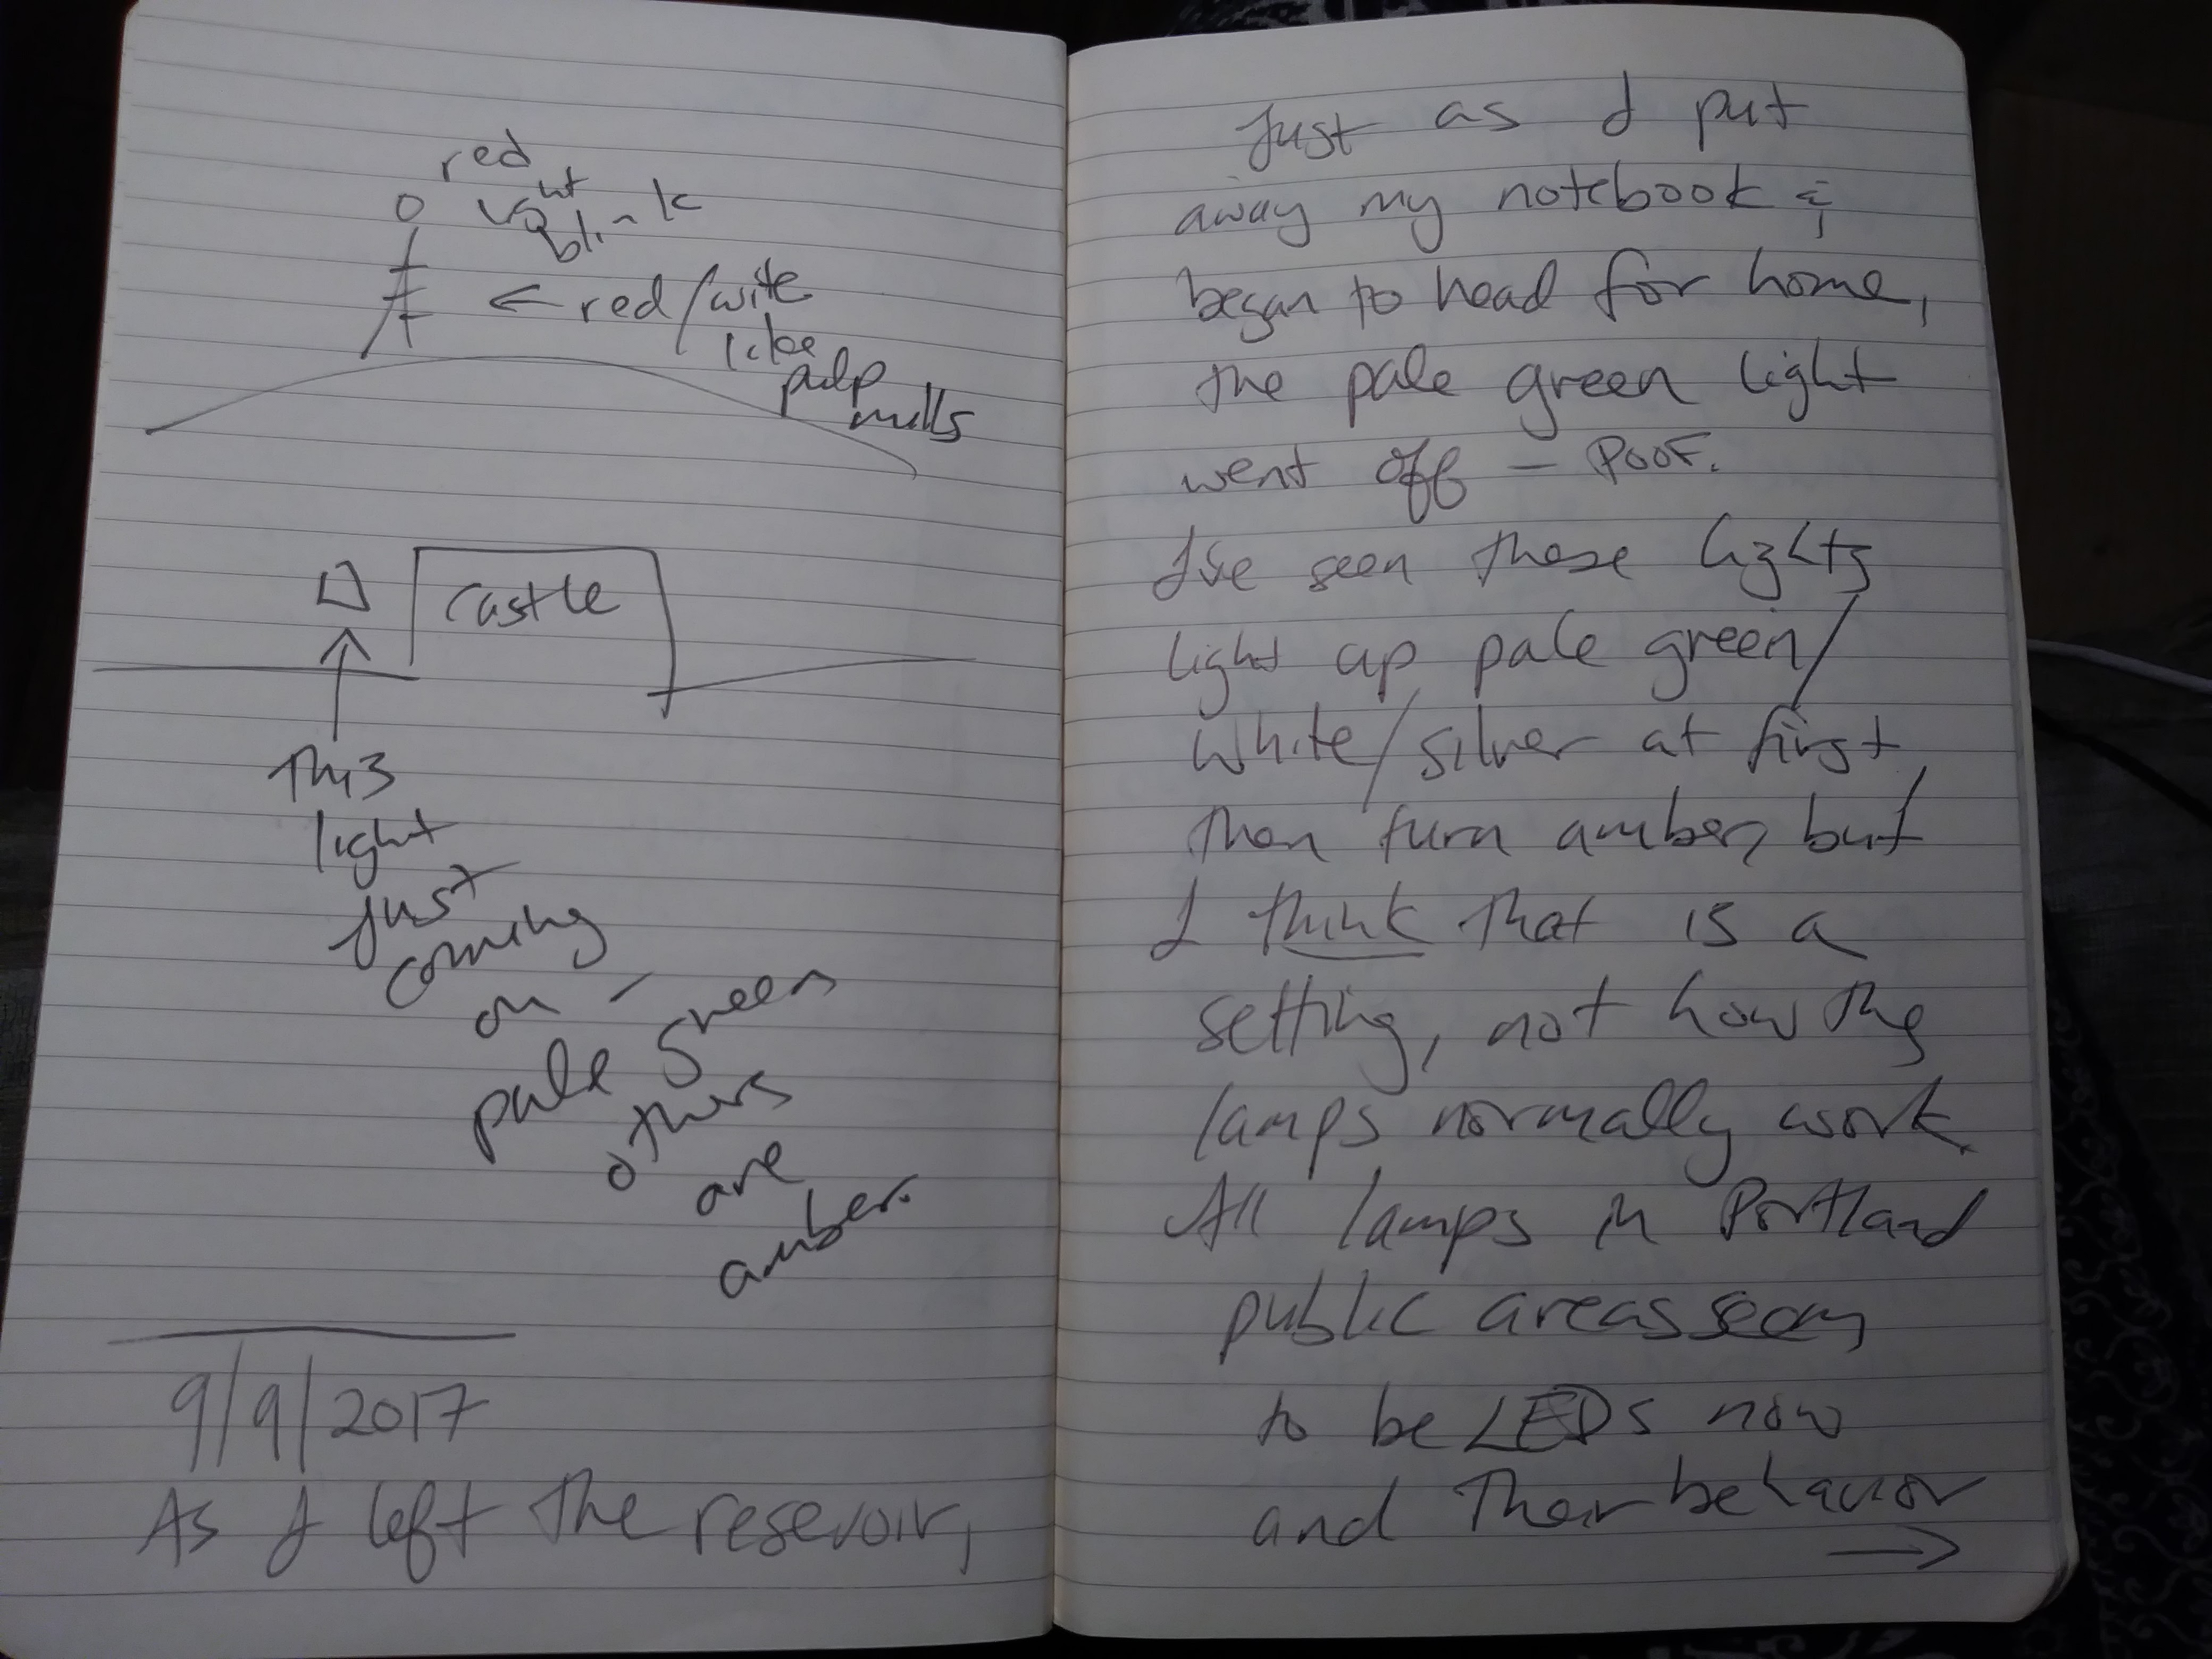 red
light
blink
← red/wite
like
pulp
mills
castle
This
light
just
coming
on –
pale green
others
are
amber.
9/9/2017
As I left the resevoir,
Just as I put
away my notebook &
began to head for home,
the pale green light
went off — POOF.
I've seen these lights
light up pale green/
white/silver at first,
then turn amber, but
I think that is a
setting, not how the
lamps normally work.
All lamps in Portland
public areas seem
to be LEDs now
and their behavior
→